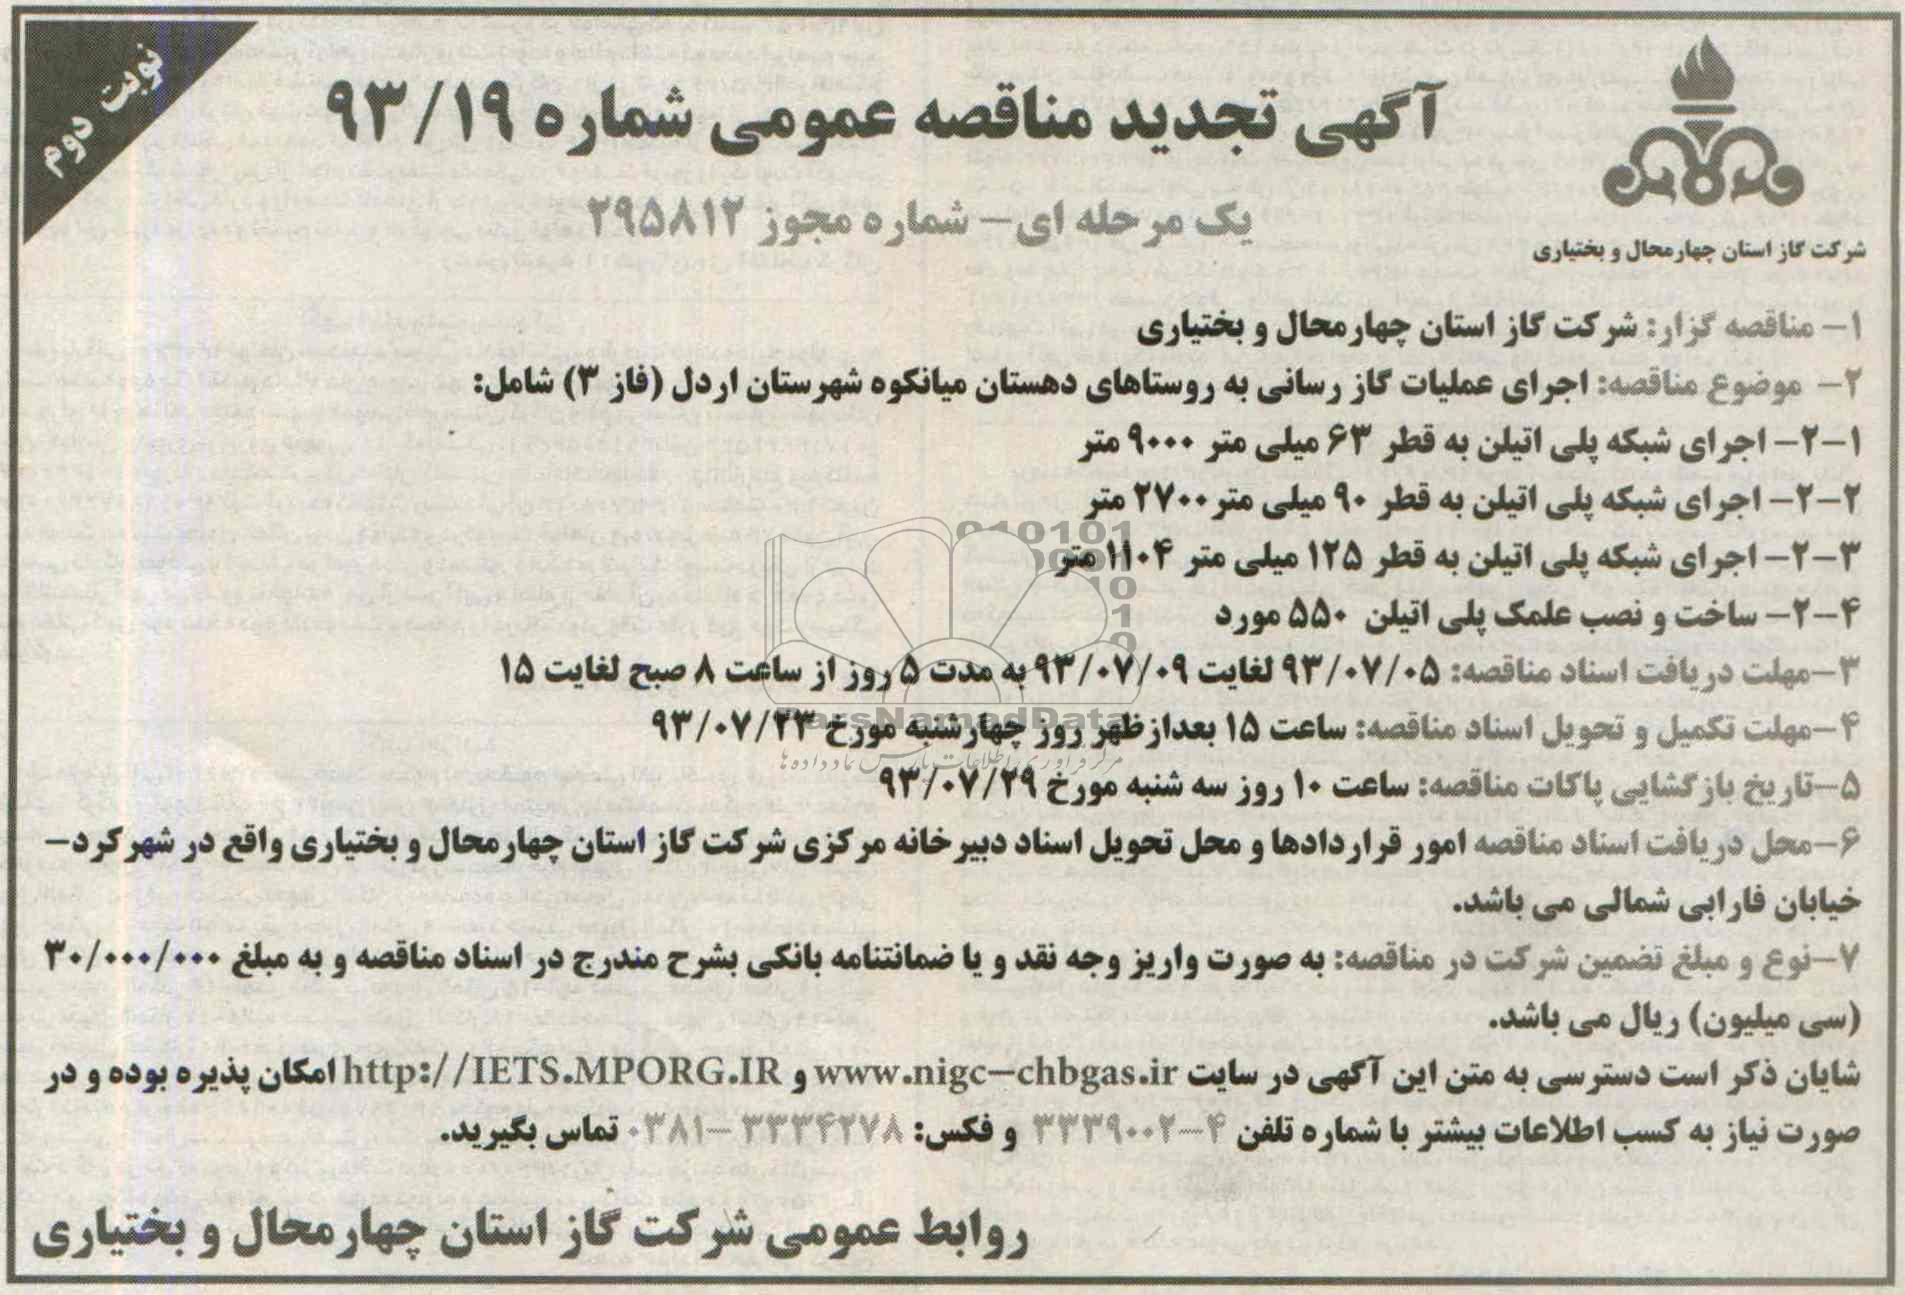 نوبت دوم
آگهی تجدید مناقصه عمومی شماره ۹۳/۱۹
یک مرحله ای- شماره مجوز ۲۹۵۸۱۲
شرکت گاز استان چهارمحال و بختیاری
۱- مناقصه گزار: شرکت گاز استان چهارمحال و بختیاری
۲- موضوع مناقصه: اجرای عملیات گاز رسانی به روستاهای دهستان میانکوه شهرستان اردل (فاز ۳) شامل:
۲-۱- اجرای شبکه پلی اتیلن به قطر ۶۳ میلی متر ۹۰۰۰ متر
۲-۲- اجرای شبکه پلی اتیلن به قطر ۹۰ میلی متر ۲۷۰۰ متر
۲-۳- اجرای شبکه پلی اتیلن به قطر ۱۲۵ میلی متر ۱۱۰۴ متر
۲-۴- ساخت و نصب علمک پلی اتیلن ۵۵۰ مورد
۳-مهلت دریافت اسناد مناقصه: ۹۳/۰۷/۰۵ لغایت ۹۳/۰۷/۰۹ به مدت ۵ روز از ساعت ۸ صبح لغایت ۱۵
۴-مهلت تکمیل و تحویل اسناد مناقصه: ساعت ۱۵ بعدازظهر روز چهارشنبه مورخ ۹۳/۰۷/۲۳
۵-تاریخ بازگشایی پاکات مناقصه: ساعت ۱۰ روز سه شنبه مورخ ۹۳/۰۷/۲۹
۶-محل دریافت اسناد مناقصه امور قراردادها و محل تحویل اسناد دبیرخانه مرکزی شرکت گاز استان چهارمحال و بختیاری واقع در شهرکرد-
خیابان فارابی شمالی می باشد.
۷-نوع و مبلغ تضمین شرکت در مناقصه: به صورت واریز وجه نقد و یا ضمانتنامه بانکی بشرح مندرج در اسناد مناقصه و به مبلغ ۳۰/۰۰۰/۰۰۰
(سی میلیون) ریال می باشد.
شایان ذکر است دسترسی به متن این آگهی در سایت www.nigc-chbgas.ir و http://IETS.MPORG.IR امکان پذیره بوده و در
صورت نیاز به کسب اطلاعات بیشتر با شماره تلفن ۴-۳۳۳۹۰۰۲ و فکس: ۳۳۳۴۲۷۸ -۰۳۸۱ تماس بگیرید.
روابط عمومی شرکت گاز استان چهارمحال و بختیاری
ParsNamadData
مرکز فرآوری اطلاعات پارس نماد داده ها